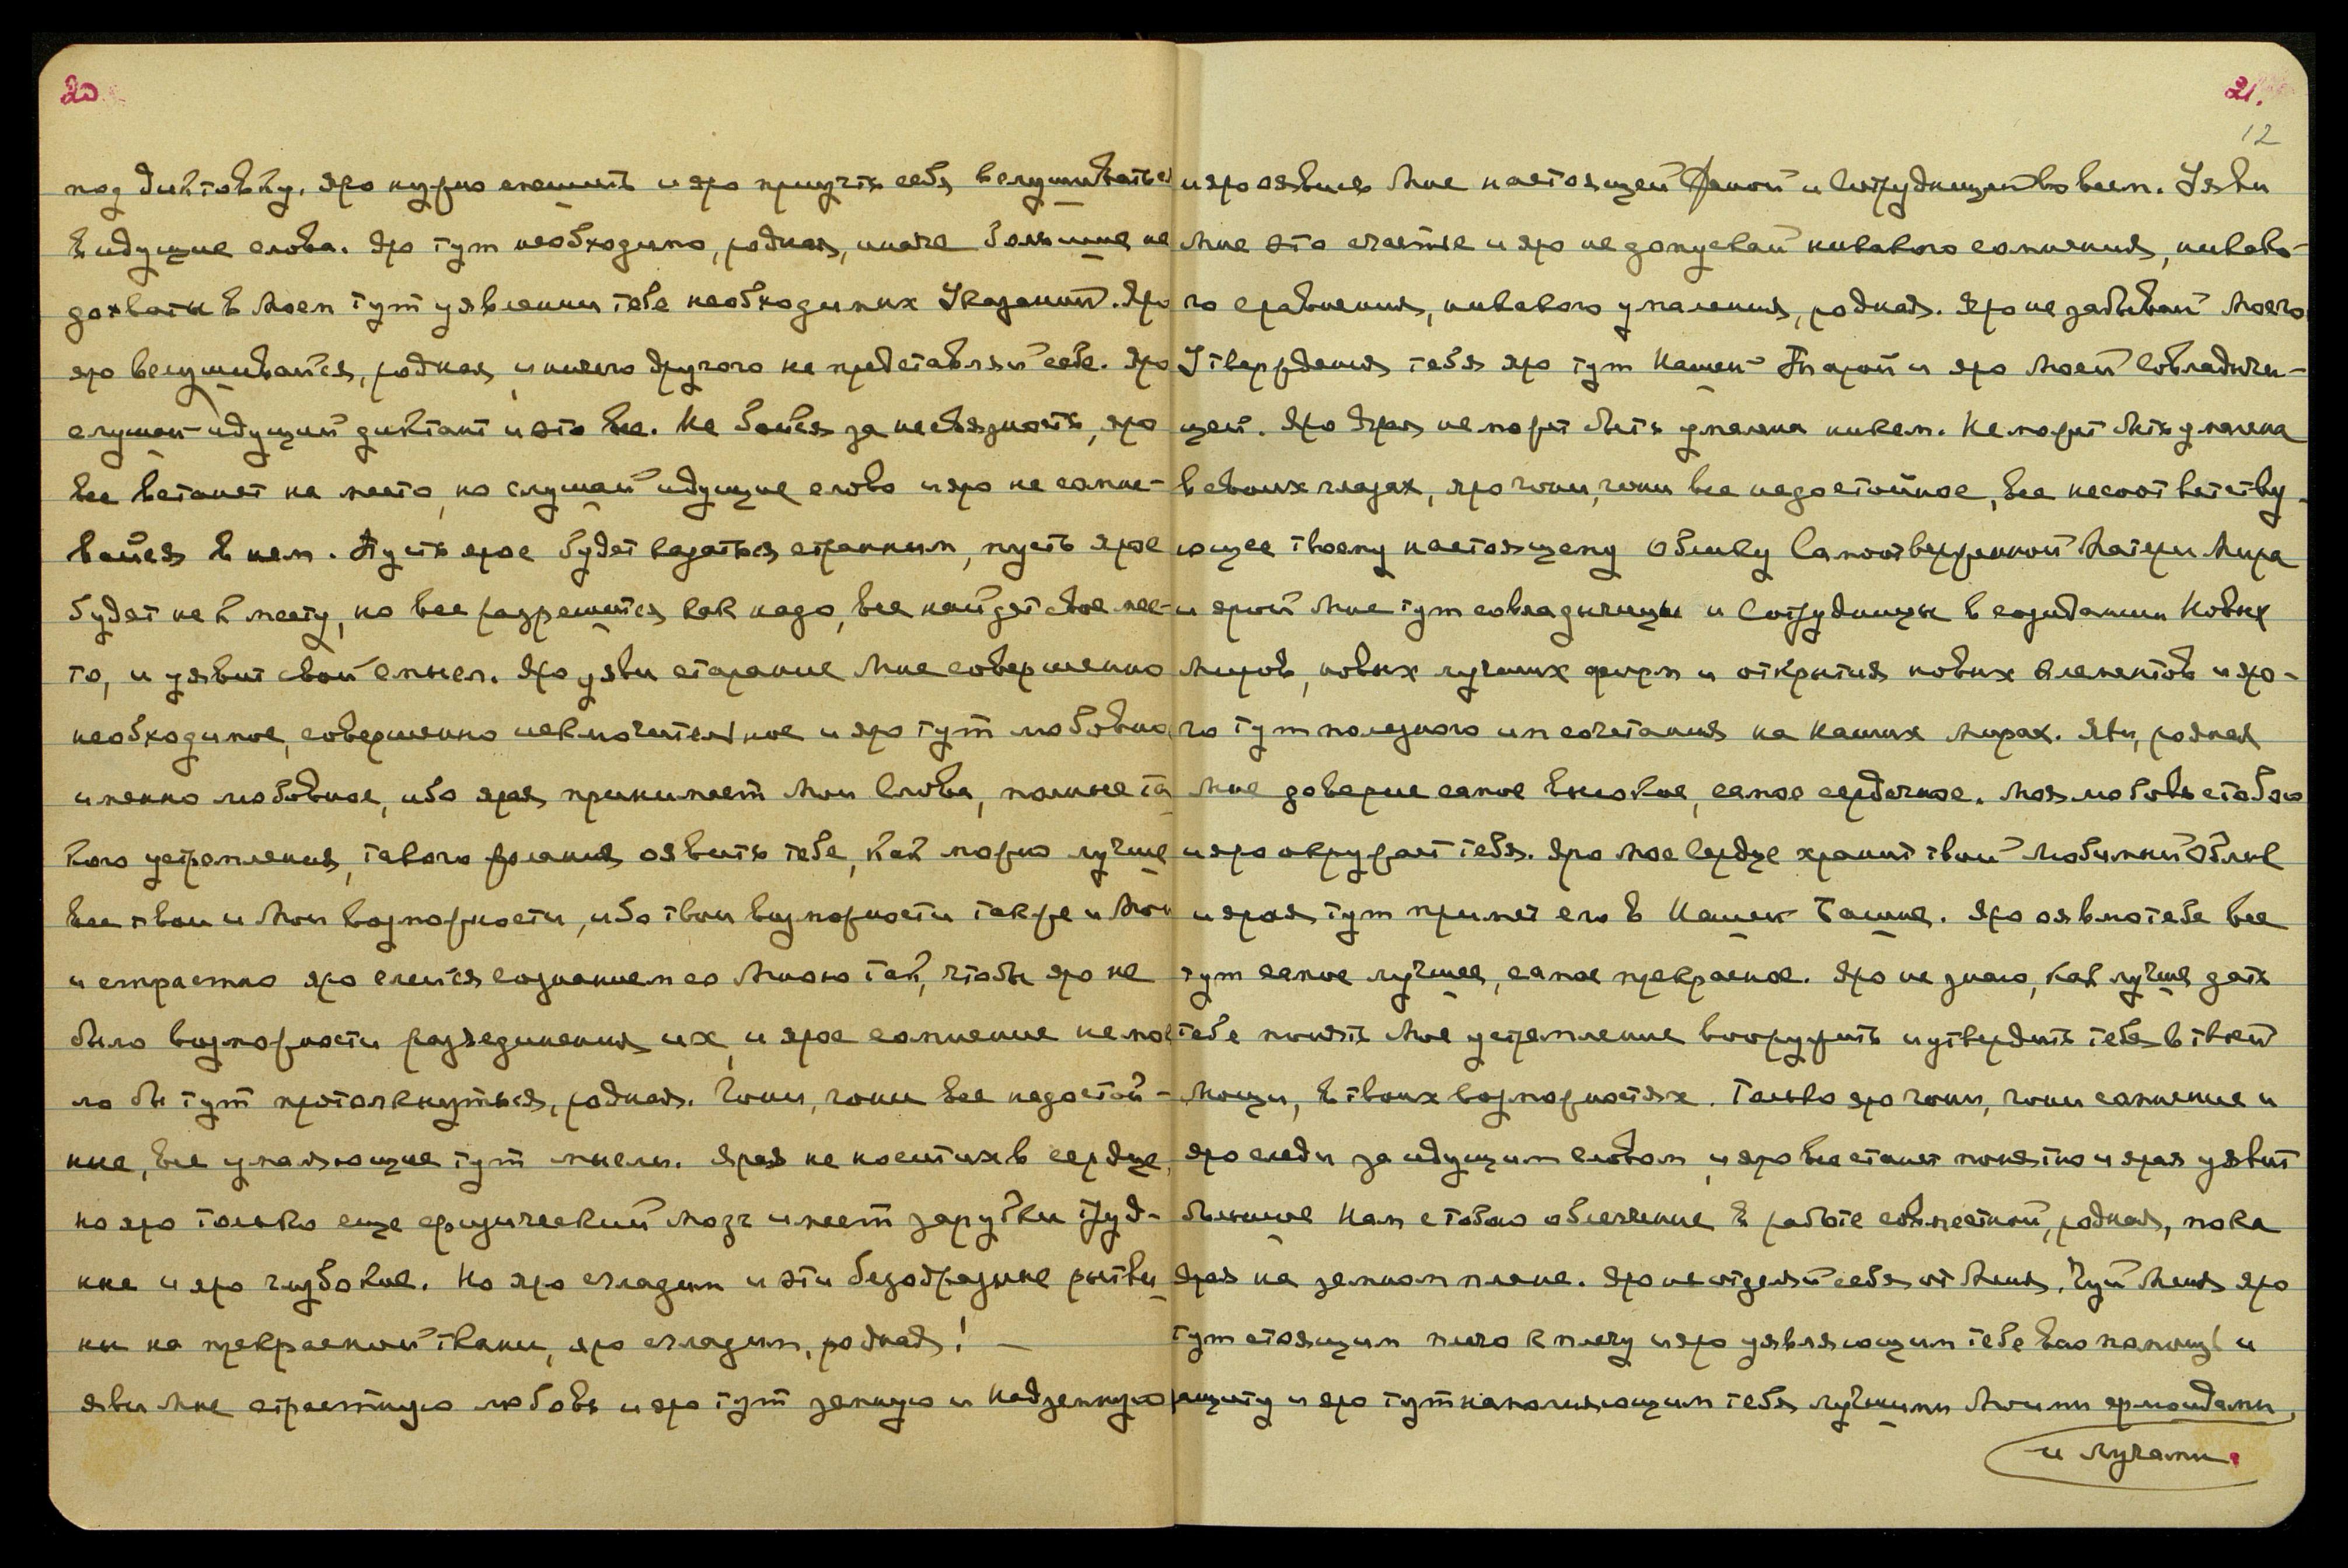 20
под диктовку. Яро нужно спешить и яро приучть себя вслушиваться
в идущие слова. Яро тут необходимо, родная, иначе больше не
дохваты в Моем тут уявлении тебе необходимых Указаний. Яро
яро вслушивайся, родная, и ничего другого не представляй себе. Яро
слушай идущий диктант и это все. Не бойся за несвязность, яро
все встанет на место, но слушай идущие слова и яро не сомне-
вайся в нем. Пусть ярое будет казаться странным, пусть ярое
будет не к месту, но все разрешится как надо, все найдет свое мес-
то, и уявит свой смысл. Яро уяви старание Мне совершенно
необходимое, совершенно исключительное и яро тут любовно,
именно любовное, ибо ярая принимает Мои Слова, полные та
кого устремления, такого желания оявить тебе, как можно лучше
все твои и Мои возможности, ибо твои возможности также и Мои
и страстно яро слейся сознанием со Мною так, чтобы яро не
было возможности разъединения их, и ярое сомнение не мог
ло бы тут протолкнуться, родная. Гони, гони все недостой-
ные, все умаляющие тут мысли. Ярая не носит их в сердце,
но яро только еще физический мозг имеет зарубки труд-
ные и яро глубокие. Но яро сгладим и эти безобразные рытви
ны на прекрасной ткани, яро сгладим, родная! —
яви Мне страстную любовь и яро тут земную и Надземную
21.
12
и яро оявись Мне настоящей Женой и Сотрудницей во всем. Уяви
Мне это счастье и яро не допускай никакого сомнения, никако-
го сравнения, никакого умаления, родная. Яро не забывай Моего
Утверждения тебя яро тут Нашей Тарой и яро Моей Совладычи-
цей. Яро Ярая не может быть умалена никем. Не может быть умалена
в своих глазах, яро гони, гони все недостойное, все несоответству-
ющее твоему настоящему Облику Самоотверженной Матери Мира
и ярой Мне тут совладычицы и Сотрудницы в созидании Новых
Миров, новых лучших форм и открытия новых элементов и яро-
го тут полезного им сочетания на Наших Мирах. Яви, родная
Мне доверие самое высокое, самое сердечное. Моя любовь с тобою
и яро окружает тебя. Яро Мое Сердце хранит твой Любимый Облик
и ярая тут примет его в Нашей Башне. Яро оявлю тебе все
тут самое лучшее, самое прекрасное. Яро не знаю, как лучше дать
тебе понять Мое устремление вооружить и утвердить тебя в твоей
Мощи, в твоих возможностях. Только яро гони, гони сомнение и
яро следи за идущим словом, и яро все станет понятно и ярая уявит
большое Нам с тобою облегчение в работе совместной, родная, пока
Ярая на земном плане. Яро не отделяй себя от Меня. Чуй Меня яро
тут стоящим плечо к плечу и яро уявляющим тебе всю помощь и
защиту и яро тут наполняющим тебя лучшими Моими флюидами,
и лучами.